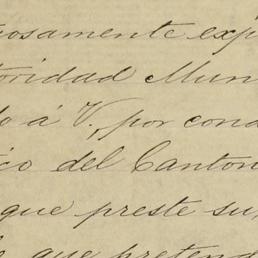 osamente exp
oridad Mun
o á V, por cond
ico del Canton
que preste su
que pretend